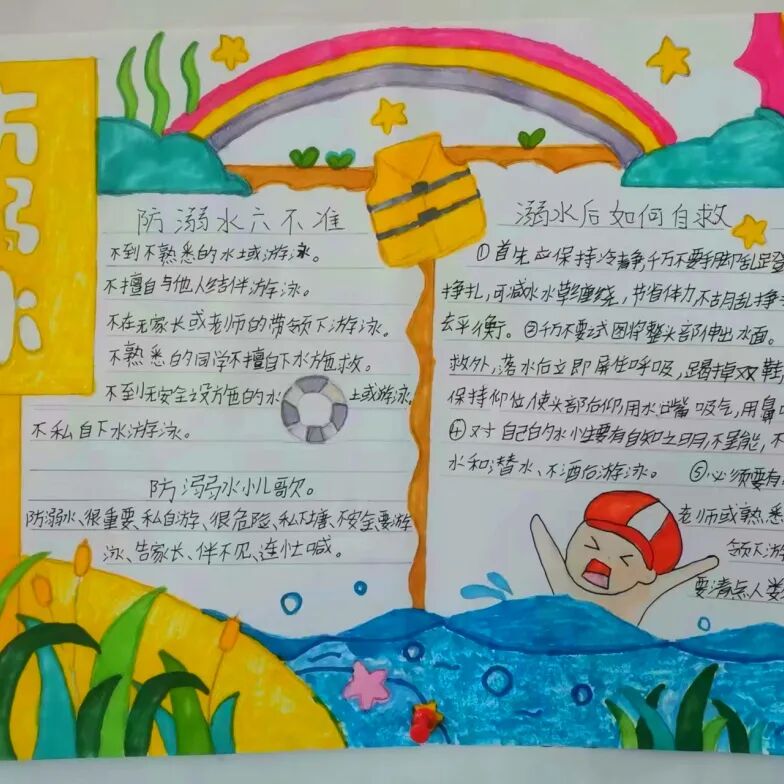 防溺水
防溺水六不准
不到不熟悉的水域游泳。
不擅自与他人结伴游泳。
不在无家长或老师的带领下游泳。
不熟悉的同学不擅自下水施救。
不到无安全设施的水域游泳
不私自下水游泳。
防溺水小儿歌。
防溺水、很重要、私自游、很危险、私下塘、不安全要游
泳、告家长、伴不见、连忙喊。
溺水后如何自救
①首先应保持冷静,千万不要手脚乱蹬
挣扎,可减水草缠绕,节省体力不胡乱挣
去平衡。③千万不要试图将整头部伸出水面。
救外,落水后立即屏住呼吸,踢掉双鞋
保持仰位使头部后仰,用水嘴吸气,用鼻
④对自己的水性要有自知之明,不逞能,不
水和潜水、不酒后游泳。 ⑤必须要有
老师或熟悉
领下游
要清点人数